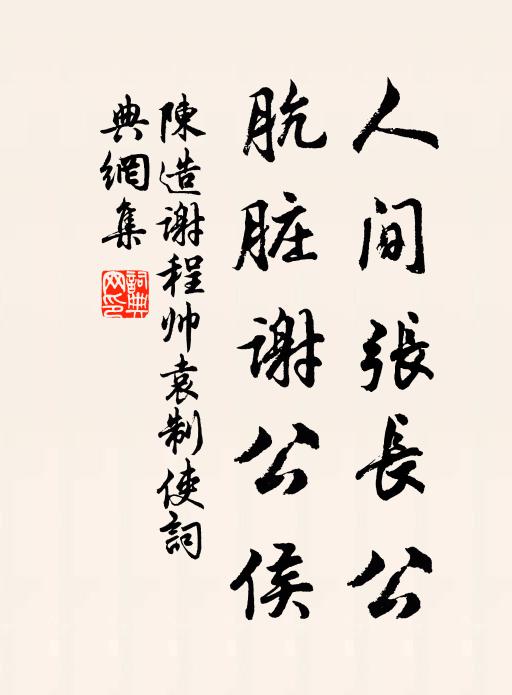 人间張長公
肮脏谢公侯
陳造谢程帅袁制使詞
典網集
詞典網印